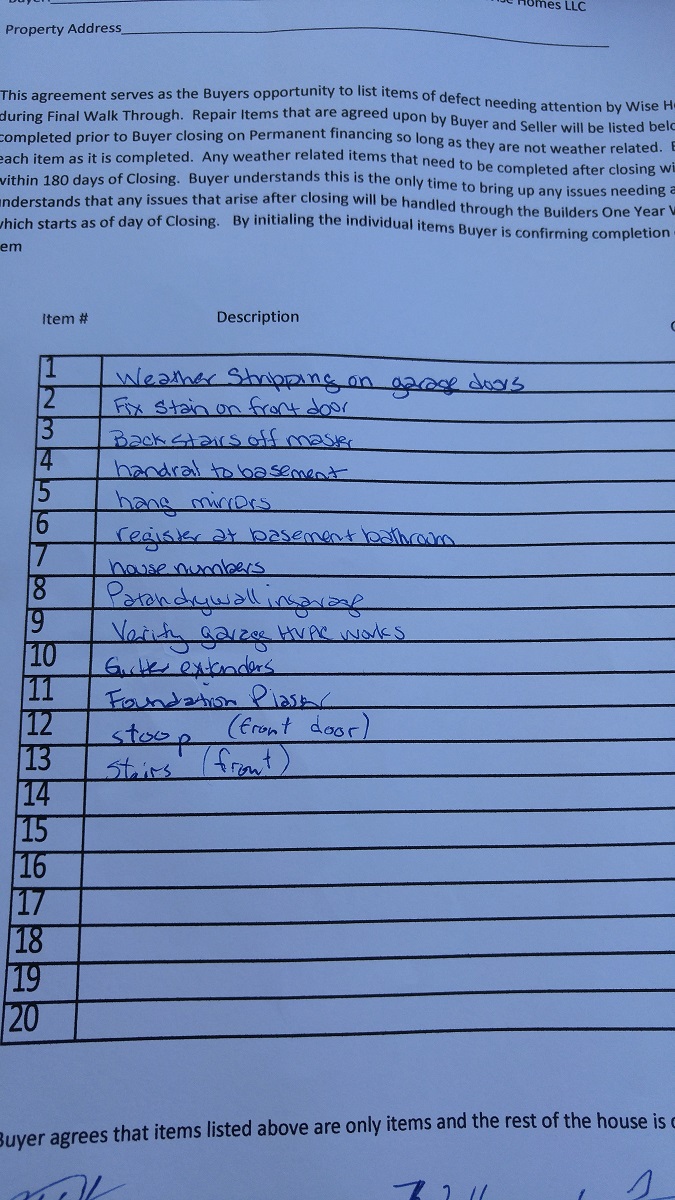 Homes LLC
Property Address
This agreement serves as the Buyers opportunity to list items of defect needing attention by Wise H
during Final Walk Through. Repair Items that are agreed upon by Buyer and Seller will be listed belo
completed prior to Buyer closing on Permanent financing so long as they are not weather related.
each item as it is completed. Any weather related items that need to be completed after closing wi
within 180 days of Closing. Buyer understands this is the only time to bring up any issues needing a
understands that any issues that arise after closing will be handled through the Builders One Year
which starts as of day of Closing. By initialing the individual items Buyer is confirming completion
em
Item # Description
1 Weather Stripping on garage doors
2 Fix stain on front door
3 Back stairs off master
4 handrail to basement
5 hang mirrors
6 register at basement bathroom
7 house numbers
8 Patch drywall in garage
9 Verify garage HVAC works
10 Gutter extenders
11 Foundation Plaster
12 stoop (front door)
13 stairs (front)
14
15
16
17
18
19
20
Buyer agrees that items listed above are only items and the rest of the house is